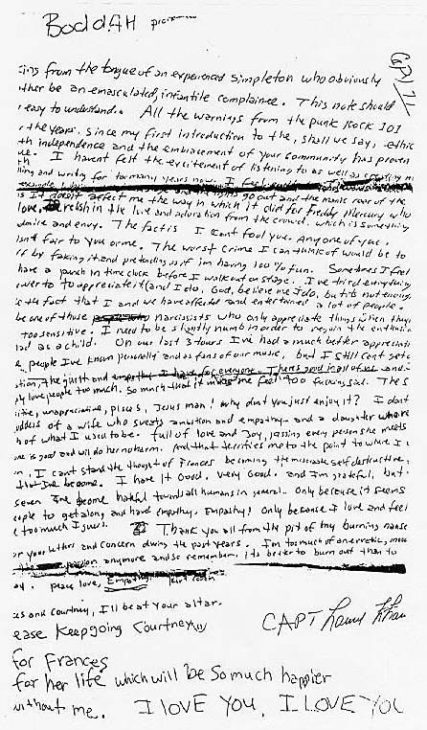 BoddAH
ing from the tongue of an experienced simpleton who obviously
ther be an emasculated, infantile complainee. This note should
easy to understand. All the warnings from the punk Rock 101
the years. Since my first introduction to the, shall we say, ethic
th independence and the embracement of your community has proven
ue. I havent felt the excitement of listening to as well as creating
ing and writing for too many years now. I feel
go out and the manic roar of the
affect me the way in which it did for Freddy Mercury who
love, relish in the love and adoration from the crowd. which is something
admire and envy. The fact is I cant fool you. Any one of you.
isnt fair to you or me. The worst crime I can think of would be to
if by faking it and pretending as if im having 100% fun. Sometimes I feel
have a punch in time clock before I walk out on stage. I've tried everything
ower to appreciate it (and I do, God, believe me I do, but its not enough
the fact that I and we have affected and entertained a lot of people.
be one of those narcissists who only appreciate things when they
too sensitive. I need to be slightly numb in order to regain the enthusia
had as a child. On our last 3 tours I've had a much better appreciati
people I've known personally and as fans of our music, but I still cant get
ation, the guilt and empathy I have for everyone. Theres good in all of us and
ply love people too much. So much that it makes me feel too fucking sad. The S
itive, unappreciative, pisces, Jesus man! why dont you just enjoy it? I dont
oddess of a wife who sweats ambition and empathy and a daughter who re
h of what I used to be. full of love and Joy, kissing every person she meets
one is good and will do her no harm. And that terrifies me to the point to where I
n. I cant stand the thought of Frances becoming the miserable, self destructive,
that Ive become. I have it Good. Very Good. and I'm grateful, but
seven Ive become hateful towards all humans in general. Only because it seems
eople to get along and have empathy. Empathy! Only because I love and feel
e too much I guess. Thank you all from the pit of my burning nause
or your letters and concern during the past years. I'm too much of an erratic, moo
the passion anymore and so remember, its better to burn out than to
ay. peace love, Empathy. Kurt Cobain
es and Courtney, I'll be at your altar.
ease Keep going Courtney
for Frances
for her life which will be so much happier
without me. I LOVE YOU, I LOVE YOU